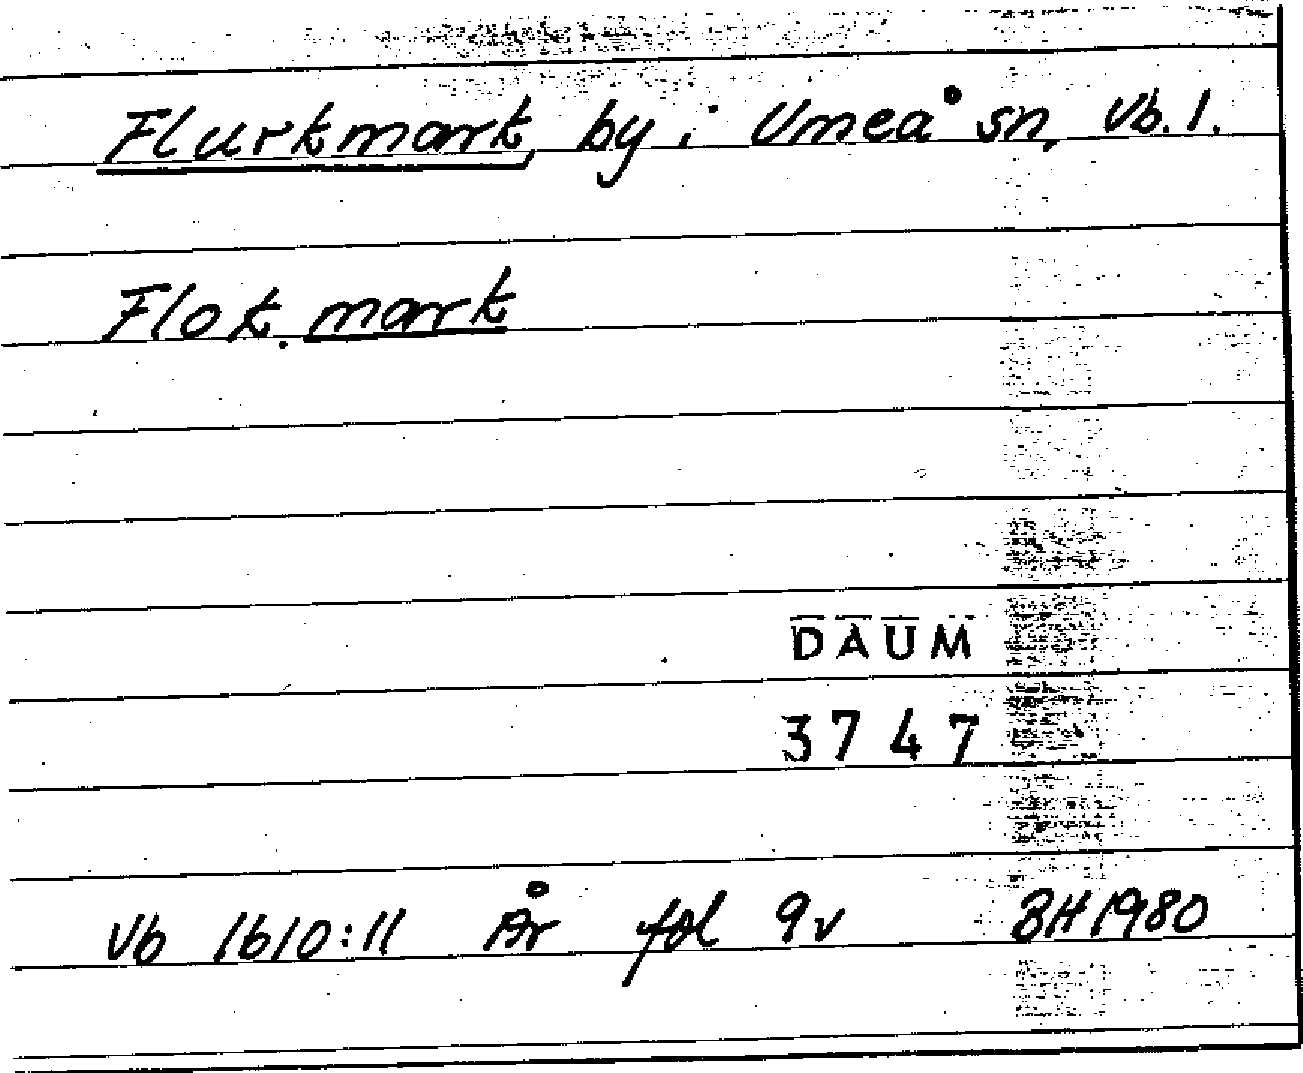 Flurkmark, by i Umeå sn, Vb. l.
Flok. mark
DAUM
3747
Vb 1610:11 År fol 9v BH 1980